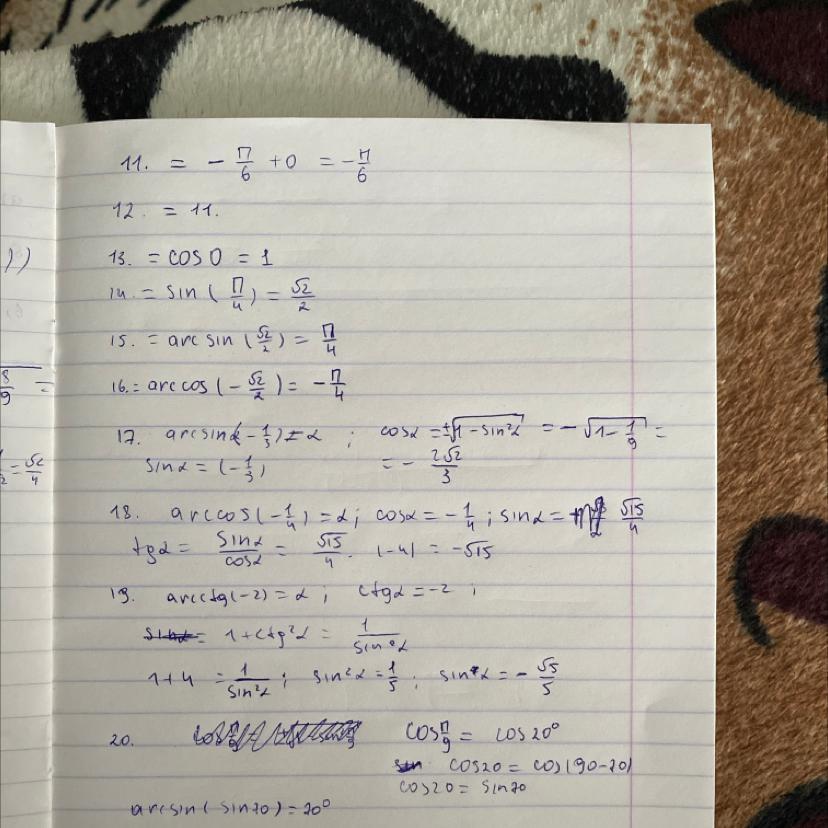 11. = - π/6 + 0 = - π/6
12. = 11.
13. = cos 0 = 1
14. = sin (π/4) = √2/2
15. = arcsin (√2/2) = π/4
16. = arccos (-√2/2) = - π/4
17. arcsin(-1/3) = α ; cosα = ±√(1 - sin²α) = -√(1 - 1/9) =
sinα = (-1/3) = - 2√2/3
18. arccos(-1/4) = α ; cosα = -1/4 ; sinα = √15/4
tgα = sinα/cosα = √15/4 · (-4) = -√15
19. arcctg(-2) = α ; ctgα = -2 ;
1 + ctg²α = 1/sin²α
1+4 = 1/sin²α ; sin²α = 1/5 ; sinα = - √5/5
20. cos π/9 = cos 20°
cos20 = cos(90-70)
cos20 = sin70
arcsin(sin70) = 70°
))
8/9 =
= √2/4